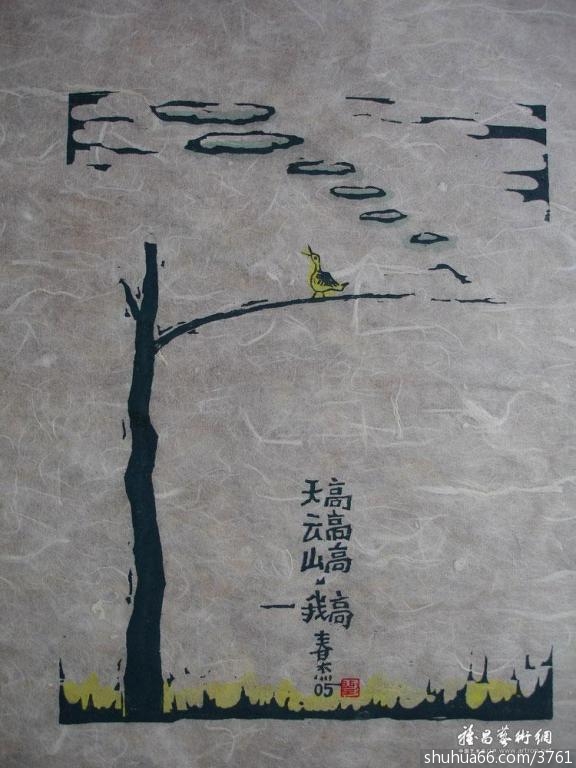 天高
云高
山高
一我高
春杰
05
雅昌藝術網
shuhua66.com/3761